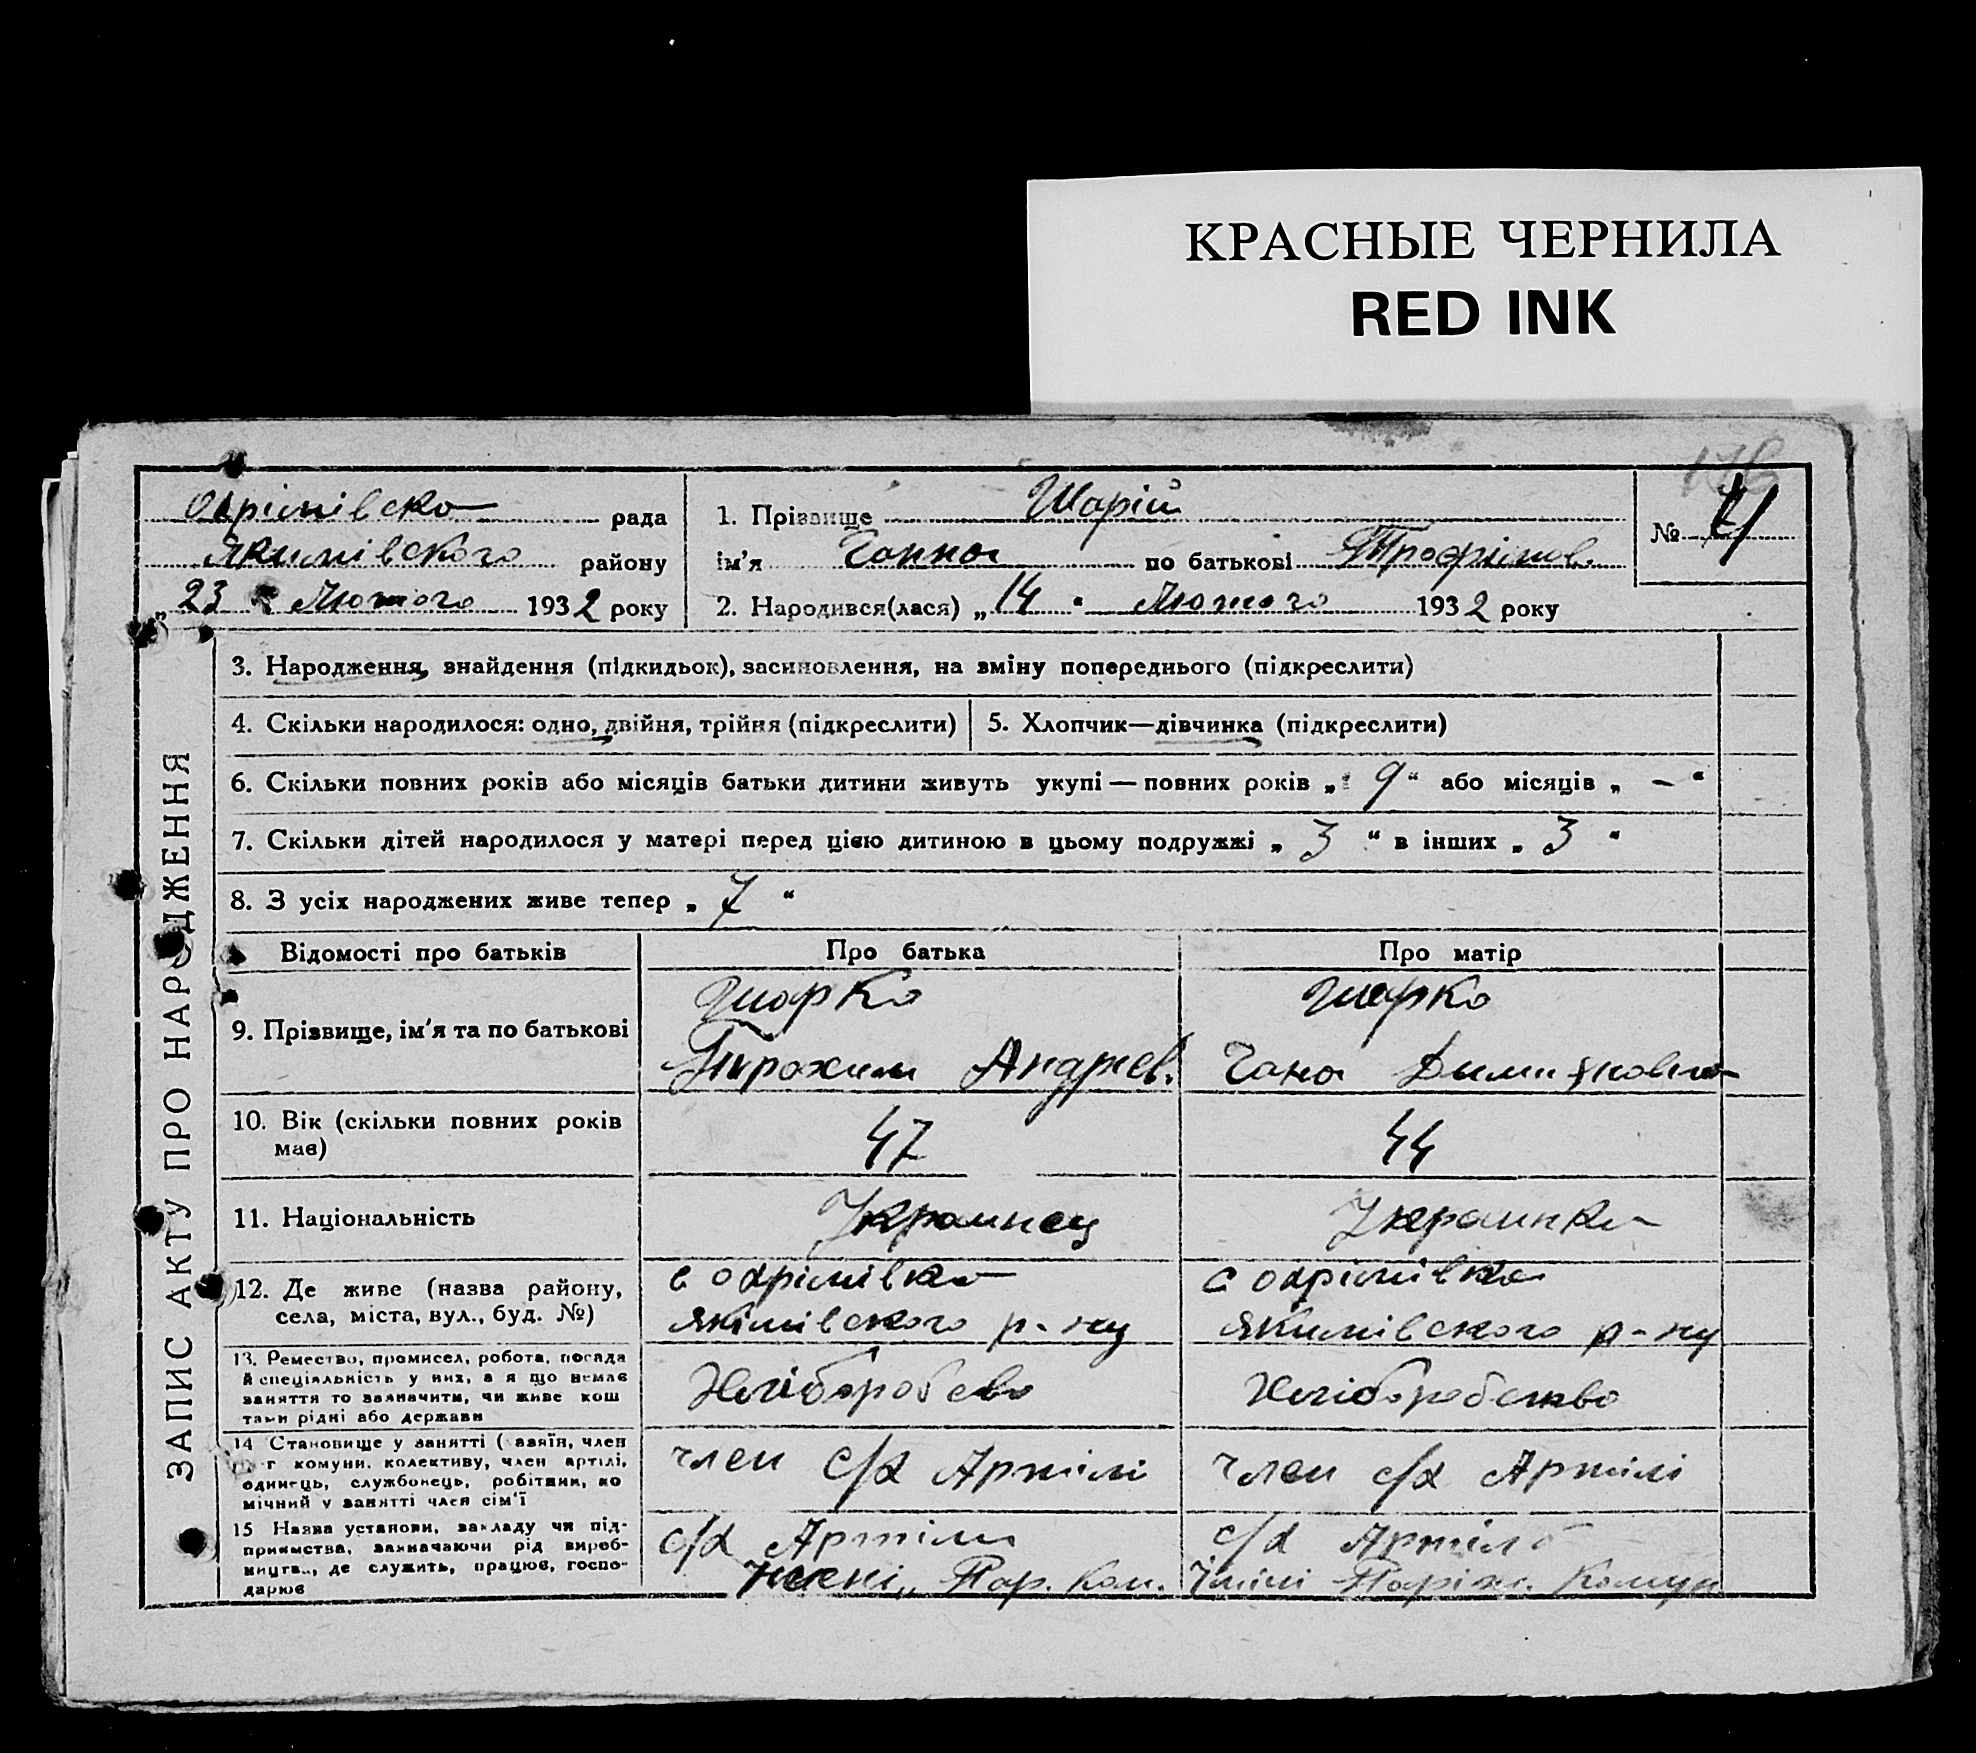 КРАСНЫЕ ЧЕРНИЛА
RED INK
Охрімівска рада
Якимівського району
„23 Лютого 1932 року
1. Прізвище Шарій
ім'я Ганна по батькові Трофімов.
2. Народився(лася) „14 " Лютого 1932 року
№ 4
ЗАПИС АКТУ ПРО НАРОДЖЕННЯ
3. Народження, знайдення (підкидьок), засиновлення, на зміну попереднього (підкреслити)
4. Скільки народилося: одно, двійня, трійня (підкреслити)
5. Хлопчик—дівчинка (підкреслити)
6. Скільки повних років або місяців батьки дитини живуть укупі — повних років „ 9 “ або місяців „ – “
7. Скільки дітей народилося у матері перед цією дитиною в цьому подружжі „ 3 “ в інших „ 3 “
8. З усіх народжених живе тепер „ 7 “
Відомості про батьків Про батька Про матір
9. Прізвище, ім'я та по батькові
Шарко
Трохим Андрієв.
Шарко
Гана
10. Вік (скільки повних років
має)
47
44
11. Національність
Украинец
Украинка
12. Де живе (назва району,
села, міста, вул., буд. №)
с Охрімівка
Якімівского р-ну
с Охрімівка
Якимівского р-ну
13. Ремество, промисел, робота, посада
й спеціяльність у них, а я що немає
заняття то зазначити, чи живе кош
тами рідні або держави
Хліборобсво
Хліборобство
14 Становище у занятті ( азяїн, член
г комуни, колективу, член артілі,
одинець, службовець, робітник, по
мічний у занятті член сім'ї
член с/х Артілі
член с/х Артілі
15 Назва установи, закладу чи під-
приємства, зазначаючи рід вироб-
ництв., де служить, працює, госпо-
дарює
с/х Артіли
Імені „ Пар. Ком.
с/х Артіль
Імині Паріж. Комун